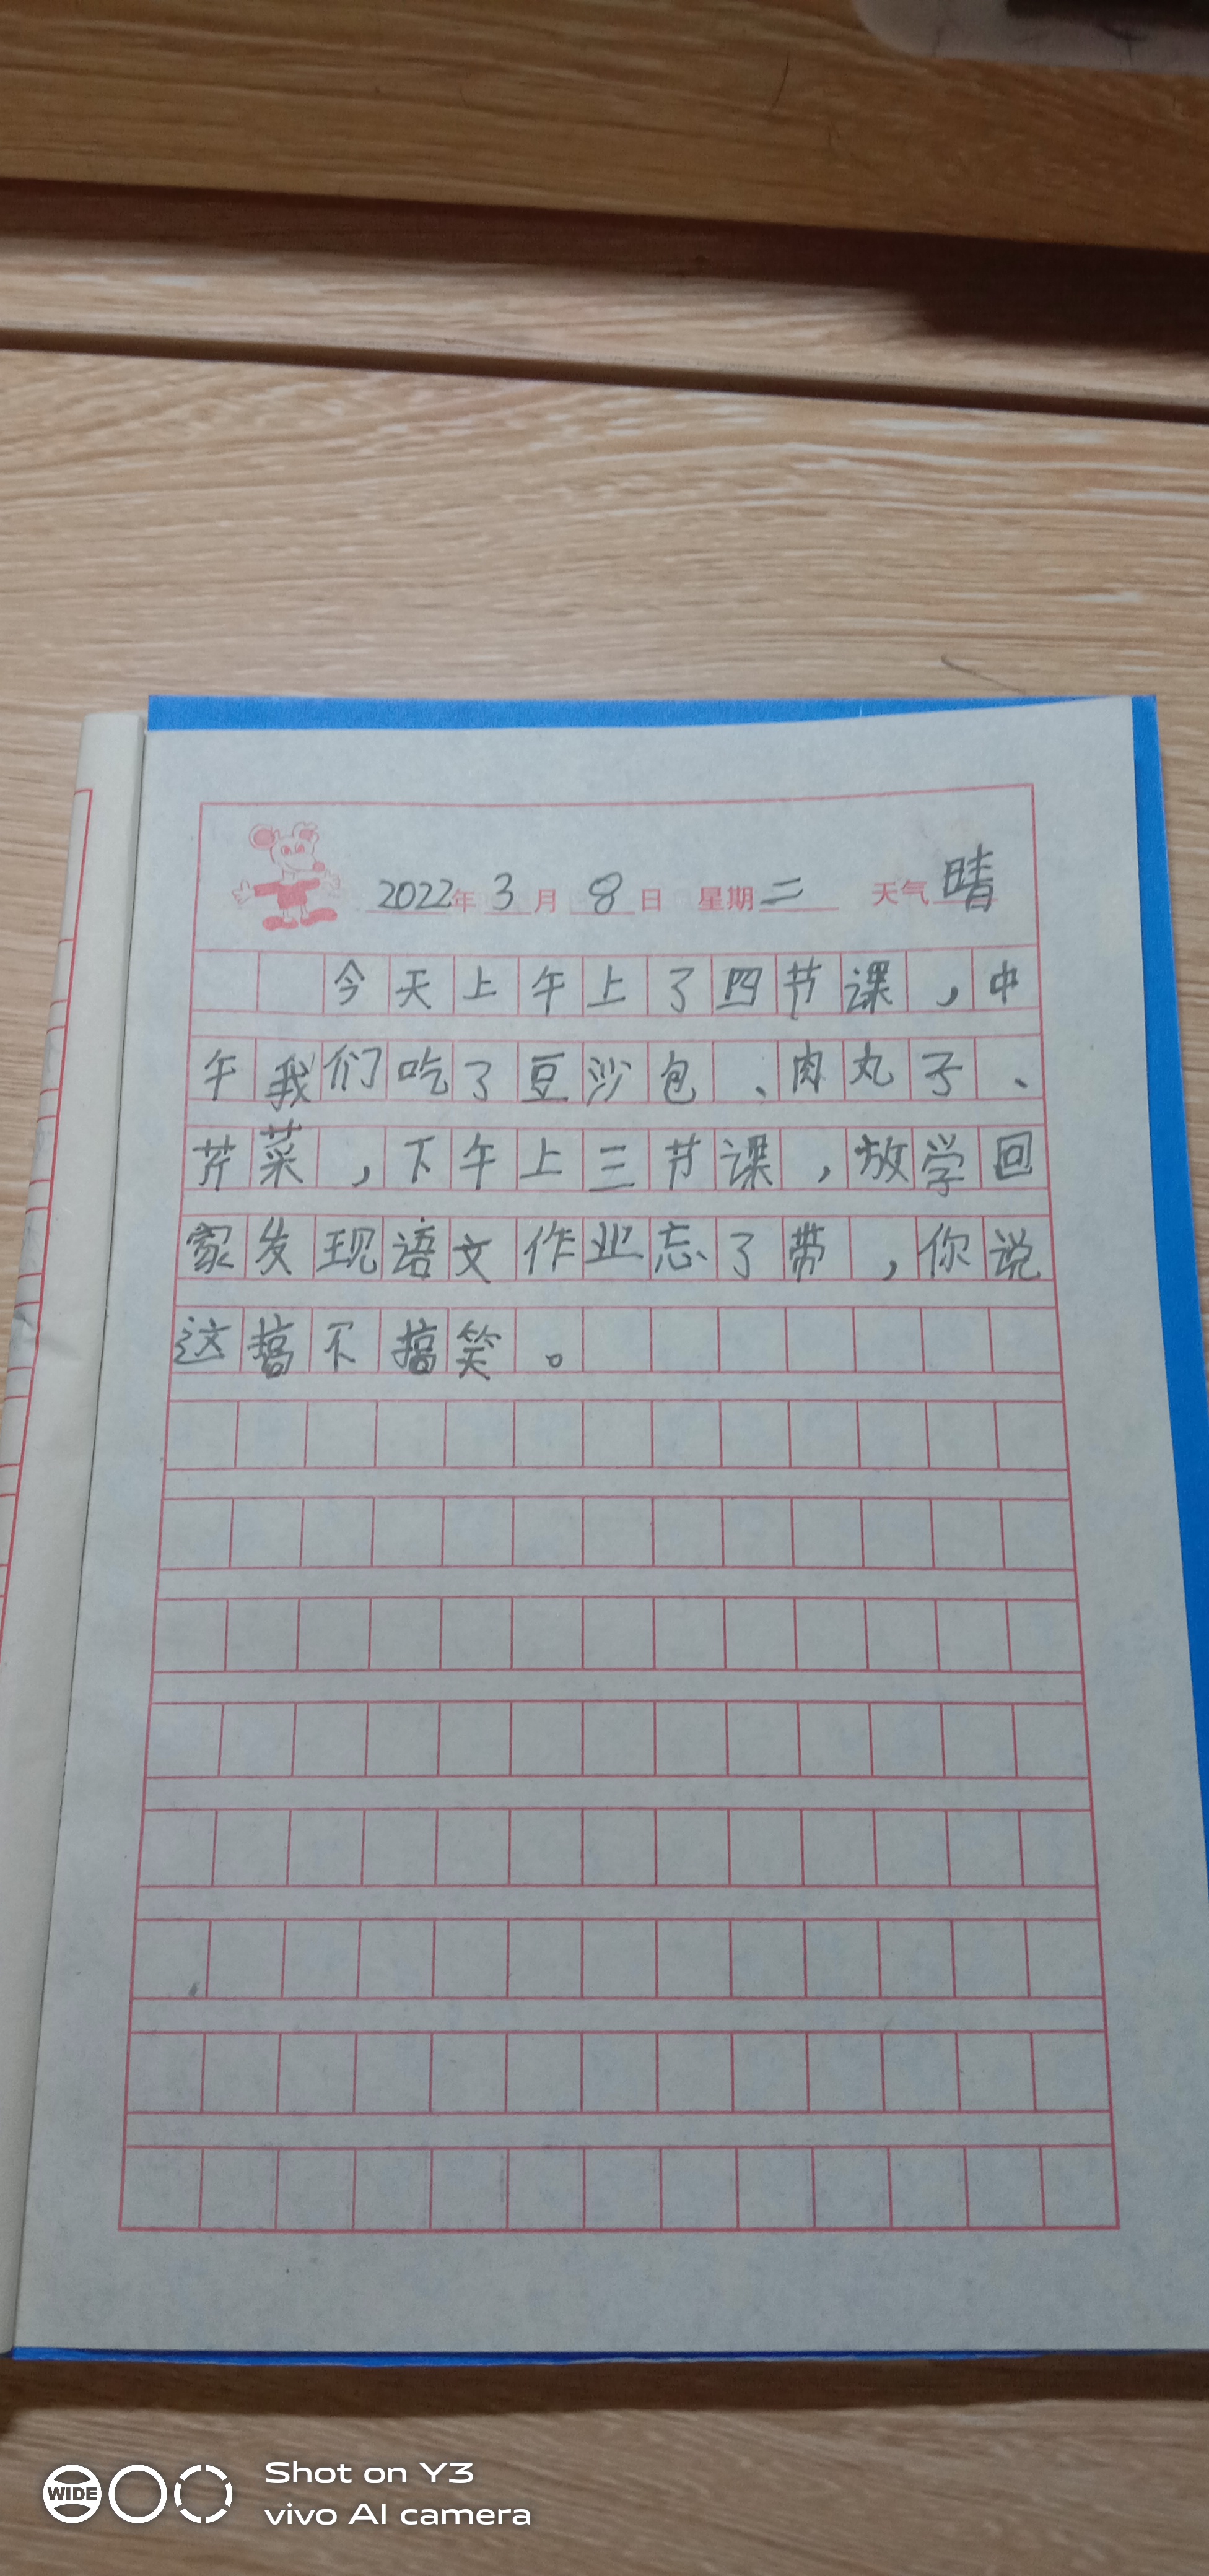 2022年 3月 8日 星期二 天气晴
今天上午上了四节课，中
午我们吃了豆沙包、肉丸子、
芹菜，下午上三节课，放学回
家发现语文作业忘了带，你说
这搞不搞笑。
WIDE
Shot on Y3
vivo AI camera